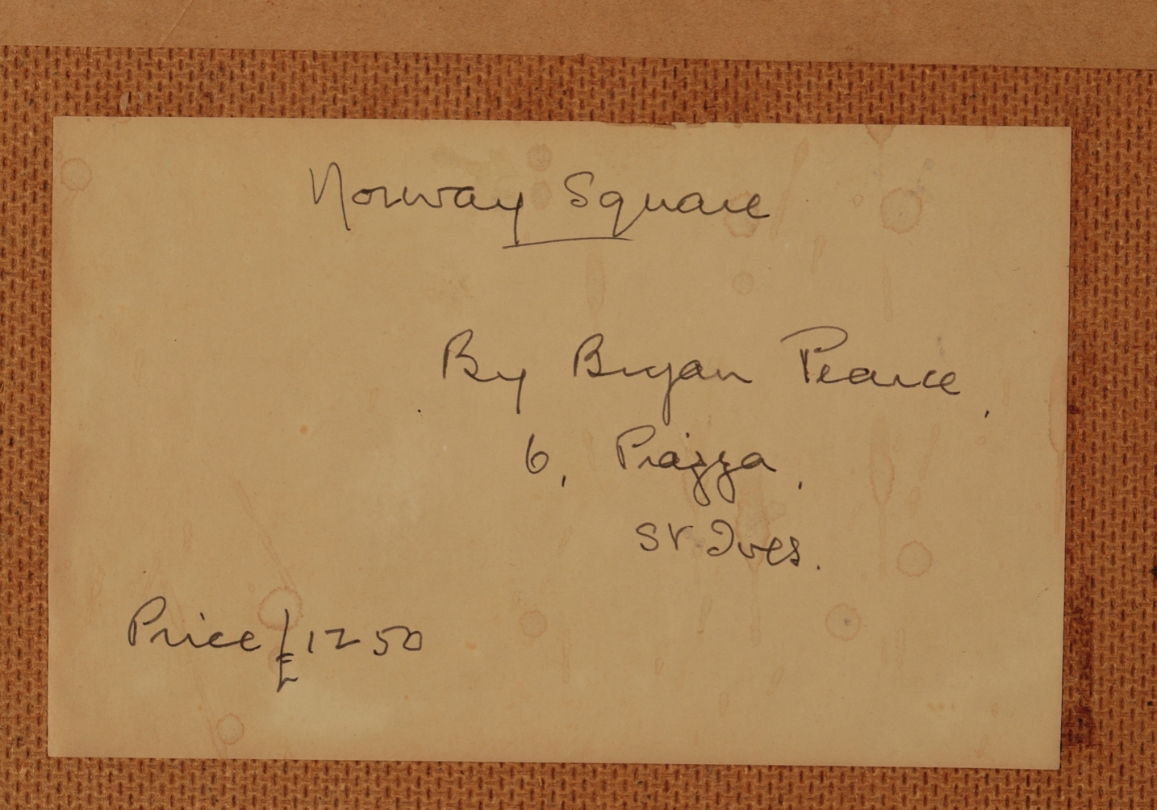 Norway Square
By Bryan Pearce,
6, Piazza,
St. Ives.
Price £1250